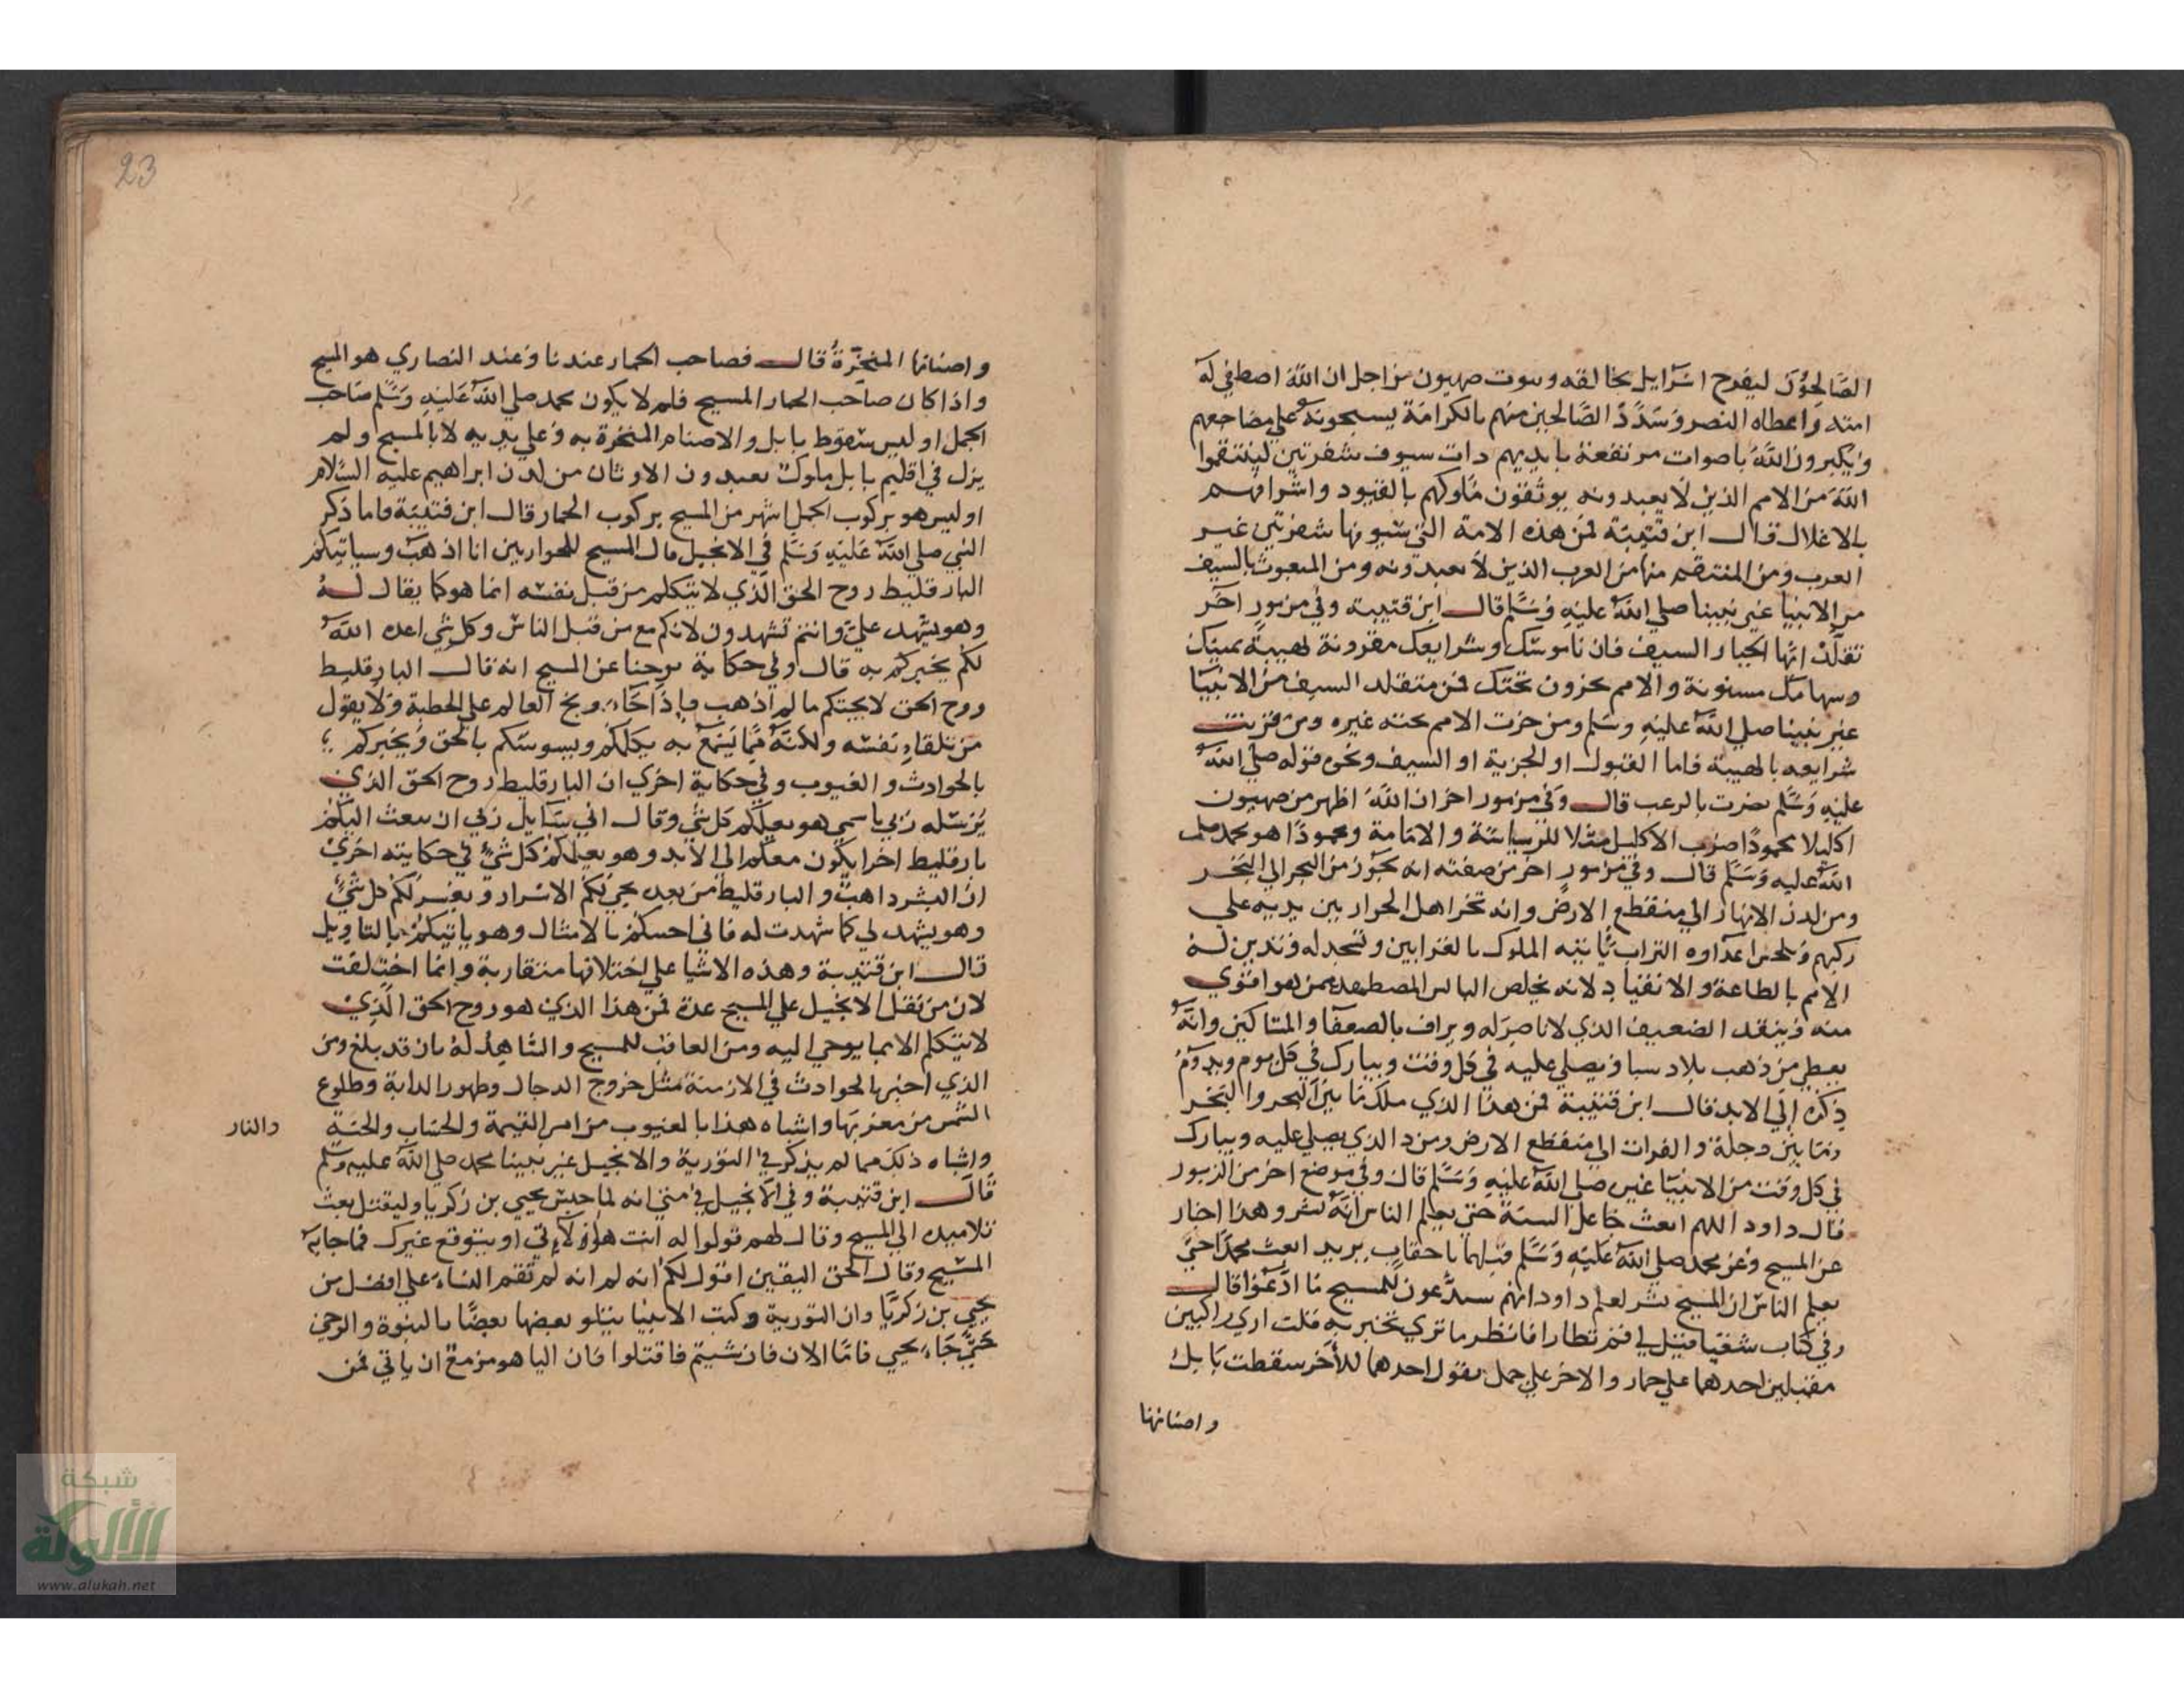 الصَّالِحُوْنَ ليفرح اسرايل بخالقه وبيوت صهيون من اجل ان الله اصطفي له
امته واعطاه النصر وسَدَّدَ الصَّالحين منهم بالكرامة يسبحونه علي مضاجعهم
ويكبرون الله باصوات مرتفعة بايديهم ذات سيوف شفرتين لينتقموا
الله من الامم الذين لا يعبدونه يوثقون ملوكهم بالقيود واشرافهم
بالاغلال قال ابن قتيبة فمن هذه الامة التي سيوفها شفرتين غير
العرب ومن المنتقم منها من العرب الذين لا يعبدونه ومن المبعوث بالسيف
من الانبيا غير نبينا صلي الله عليه وسَلَّم قال ابن قتيبة وفي مزمور اخر
تقلد ايها الجبار السيف فان ناموسك وشرايعك مقرونة لهيبة يمينك
وسهامك مسنونة والامم يخرون تحتك فمن متقلد السيف من الانبيا
غير نبينا صلي الله عليه وسلم ومن خرت الامم تحته غيره ومن قرنت
شرايعه بالهيبة فاما القبول او الجزية او السيف ونحوه قوله صلي الله
عليه وسَلم نصرت بالرعب قال وفي مزمور اخر ان الله اظهر من صهيون
اكليلا محمودًا ضرب الاكليل مثلا للرياسة والامامة ومحمودًا هو محمد صلي
الله عليه وَسَلَّم قال وفي مزمور اخر من صفته انه يجوز من البحر الي البحر
ومن لدن الانهار الي منقطع الارض وانه تخر اهل الجزاير بين يديه علي
ركبهم وتلحس اعداوه التراب تاتيه الملوك بالقرابين وتسجد له وتدين له
الامم بالطاعة والانقياد لانه يخلص البايس المضطهد ممن هو اقوي
منه وينقذ الضعيف الذي لا ناصر له ويراف بالضعفا والمساكين وانه
يعطي من ذهب بلاد سبا ويصلي عليه في كل وقت ويبارك في كل يوم ويدوم
ذكره الي الابد قال ابن قتيبة فمن هذا الذي ملك ما بين البحر والبحر
وما بين دجلة والفرات الي منقطع الارض ومن ذا الذي يصلي عليه ويبارك
في كل وقت من الانبيا غيره صلي الله عليه وسَلَّم قال وفي موضع اخر من الزبور
قال داود اللهم ابعث جاعل السنة حتي يعلم الناس انه بشر وهذا اخبار
عن المسيح وعن محمد صلي الله عليه وسَلَّم قبلهما باحقاب يريد ابعث محمدًا حتي
يعلم الناس ان المسيح بشر لعلم داود انهم سيدعون للمسيح ما ادعوا قال
وفي كتاب شعيا قيل لي قم نظارا فانظر ما تري تخبر به قلت اري راكبين
مقبلين احدهما علي حمار والاخر علي جمل يقول احدهما للاخر سقطت بابل
واصنامها
23
واصنامها المنخرة قال فصاحب الحمار عندنا وعند النصاري هو المسيح
واذا كان صاحب الحمار المسيح فلم لا يكون محمد صلي الله عليه وسَلَّم صاحب
الجمل اوليس سقوط بابل والاصنام المنخرة به وعلي يديه لا بالمسيح ولم
يزل في اقليم بابل ملوك يعبدون الاوثان من لدن ابراهيم عليه السلام
اوليس هو بركوب الجمل اشهر من المسيح بركوب الحمار قال ابن قتيبة فاما ذكر
النبي صلي الله عليه وَسَلم في الانجيل قال المسيح للحواريين انا اذهب وسياتيكم
البارقليط روح الحق الذي لا يتكلم من قبل نفسه انما هو كما يقال له
وهو يشهد عليَّ وانتم تشهدون لانكم مع من قبل الناس وكل شي اعده الله
لكم يخبركم به قال وفي حكاية يوحنا عن المسيح انه قال البارقليط
روح الحق لا يجيكم ما لم اذهب فاذا جاء وبخ العالم علي الخطية ولا يقول
من تلقاء نفسه ولكنه مما يَسْمع به يكلمكم ويسوسكم بالحق ويخبركم
بالحوادث والغيوب وفي حكاية اخري ان البارقليط روح الحق الذي
يُرسله ربي باسمي هو يعلمكم كل شي وقال اني سايل ربي ان يبعث اليكم
بارقليط اخر يكون معكم الي الابد وهو يعلمكم كل شيء وفي حكايته اخري
ان البشر ذاهب والبارقليط من بعده يحيي لكم الاسرار ويفسر لكم كل شيء
وهو يشهد لي كما شهدت له فاني اجيكم بالامثال وهو ياتيكم بالتاويل
قال ابن قتيبة وهذه الاشيا علي اختلافها متقاربة وانما اختلفت
لان من نقل الانجيل علي المسيح عدة فمن هذا الذي هو روح الحق الَّذِيْ
لا يتكلم الا بما يوحي اليه ومن العاقب للمسيح والشاهد له بان قد بلغ ومن
الذي اخبر بالحوادث في الازمنة مثل خروج الدجال وظهور الدابة وطلوع
الشمس من مغربها واشباه هذا بالغيوب من امر القيمة والحساب والجنة
والنار
واشباه ذلك مما لم يذكر في التورية والانجيل غير نبينا محمد صلي الله عليه وسلم
قال ابن قتيبة وفي الانجيل في متي انه لما حبس يحيي بن زكريا وليقتل بعث
تلاميذه الي المسيح وقال لهم قولوا له انت هو الاتي او يتوقع غيرك فاجابه
المسيح وقال الحق اليقين اقول لكم انه لم انه لم تقم النساء علي افضل من
يحيي بن زكريا وان التورية وكتب الانبيا يتلو بعضها بعضًا بالنبوة والوحي
حتي جاء يحيي فاما الان فان شيتم فاقتلوا فان اليا هو مزمع ان ياتي فمن
شبكة
الألوكة
www.alukah.net